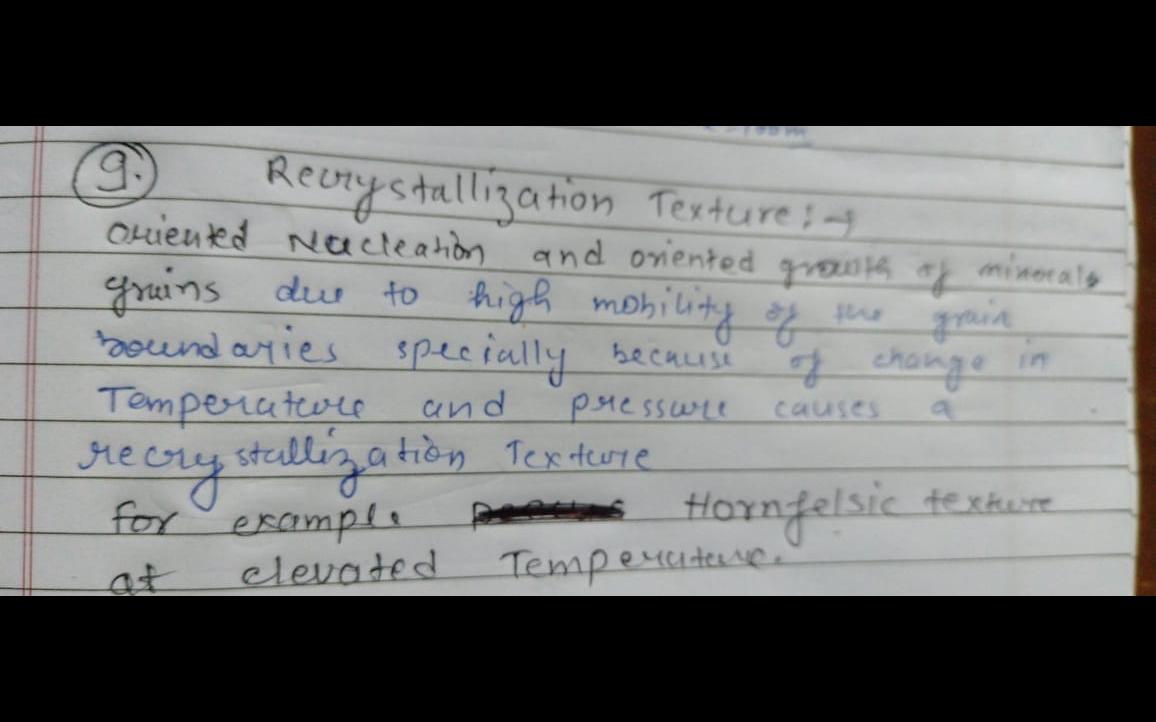 9. Recrystallization Texture :→
oriented Nucleation and oriented growth of minerals
grains due to high mobility of the grain
boundaries specially because of change in
Temperature and pressure causes a
recrystallization Texture
for example Hornfelsic texture
at elevated Temperature.